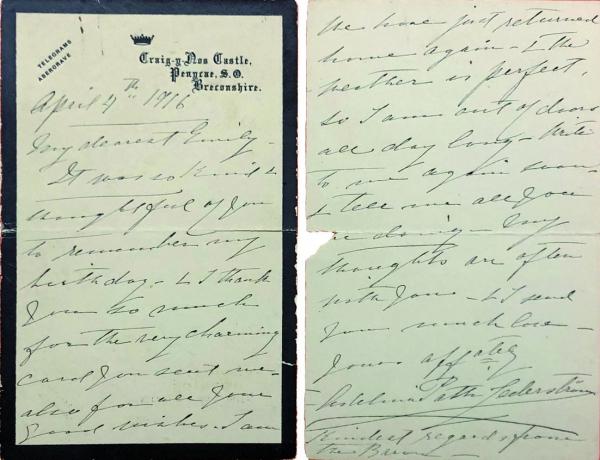 TELEGRAMS
ABERGRAVE
Craig-y-Nos Castle,
Penycae, S.O.
Breconshire.
April 4th 1916
My dearest Emily -
It was so kind &
thoughtful of you
to remember my
birthday - & I thank
you so much
for the very charming
card you sent me -
also for all your
good wishes. I am
We have just returned
home again - & the
weather is perfect,
so I am out of doors
all day long - Write
to me again soon
& tell me all you
are doing - My
thoughts are often
with you - & I send
you much love -
Yours affately
Adelina Patti Cederström
Kindest regards from
the Baron -